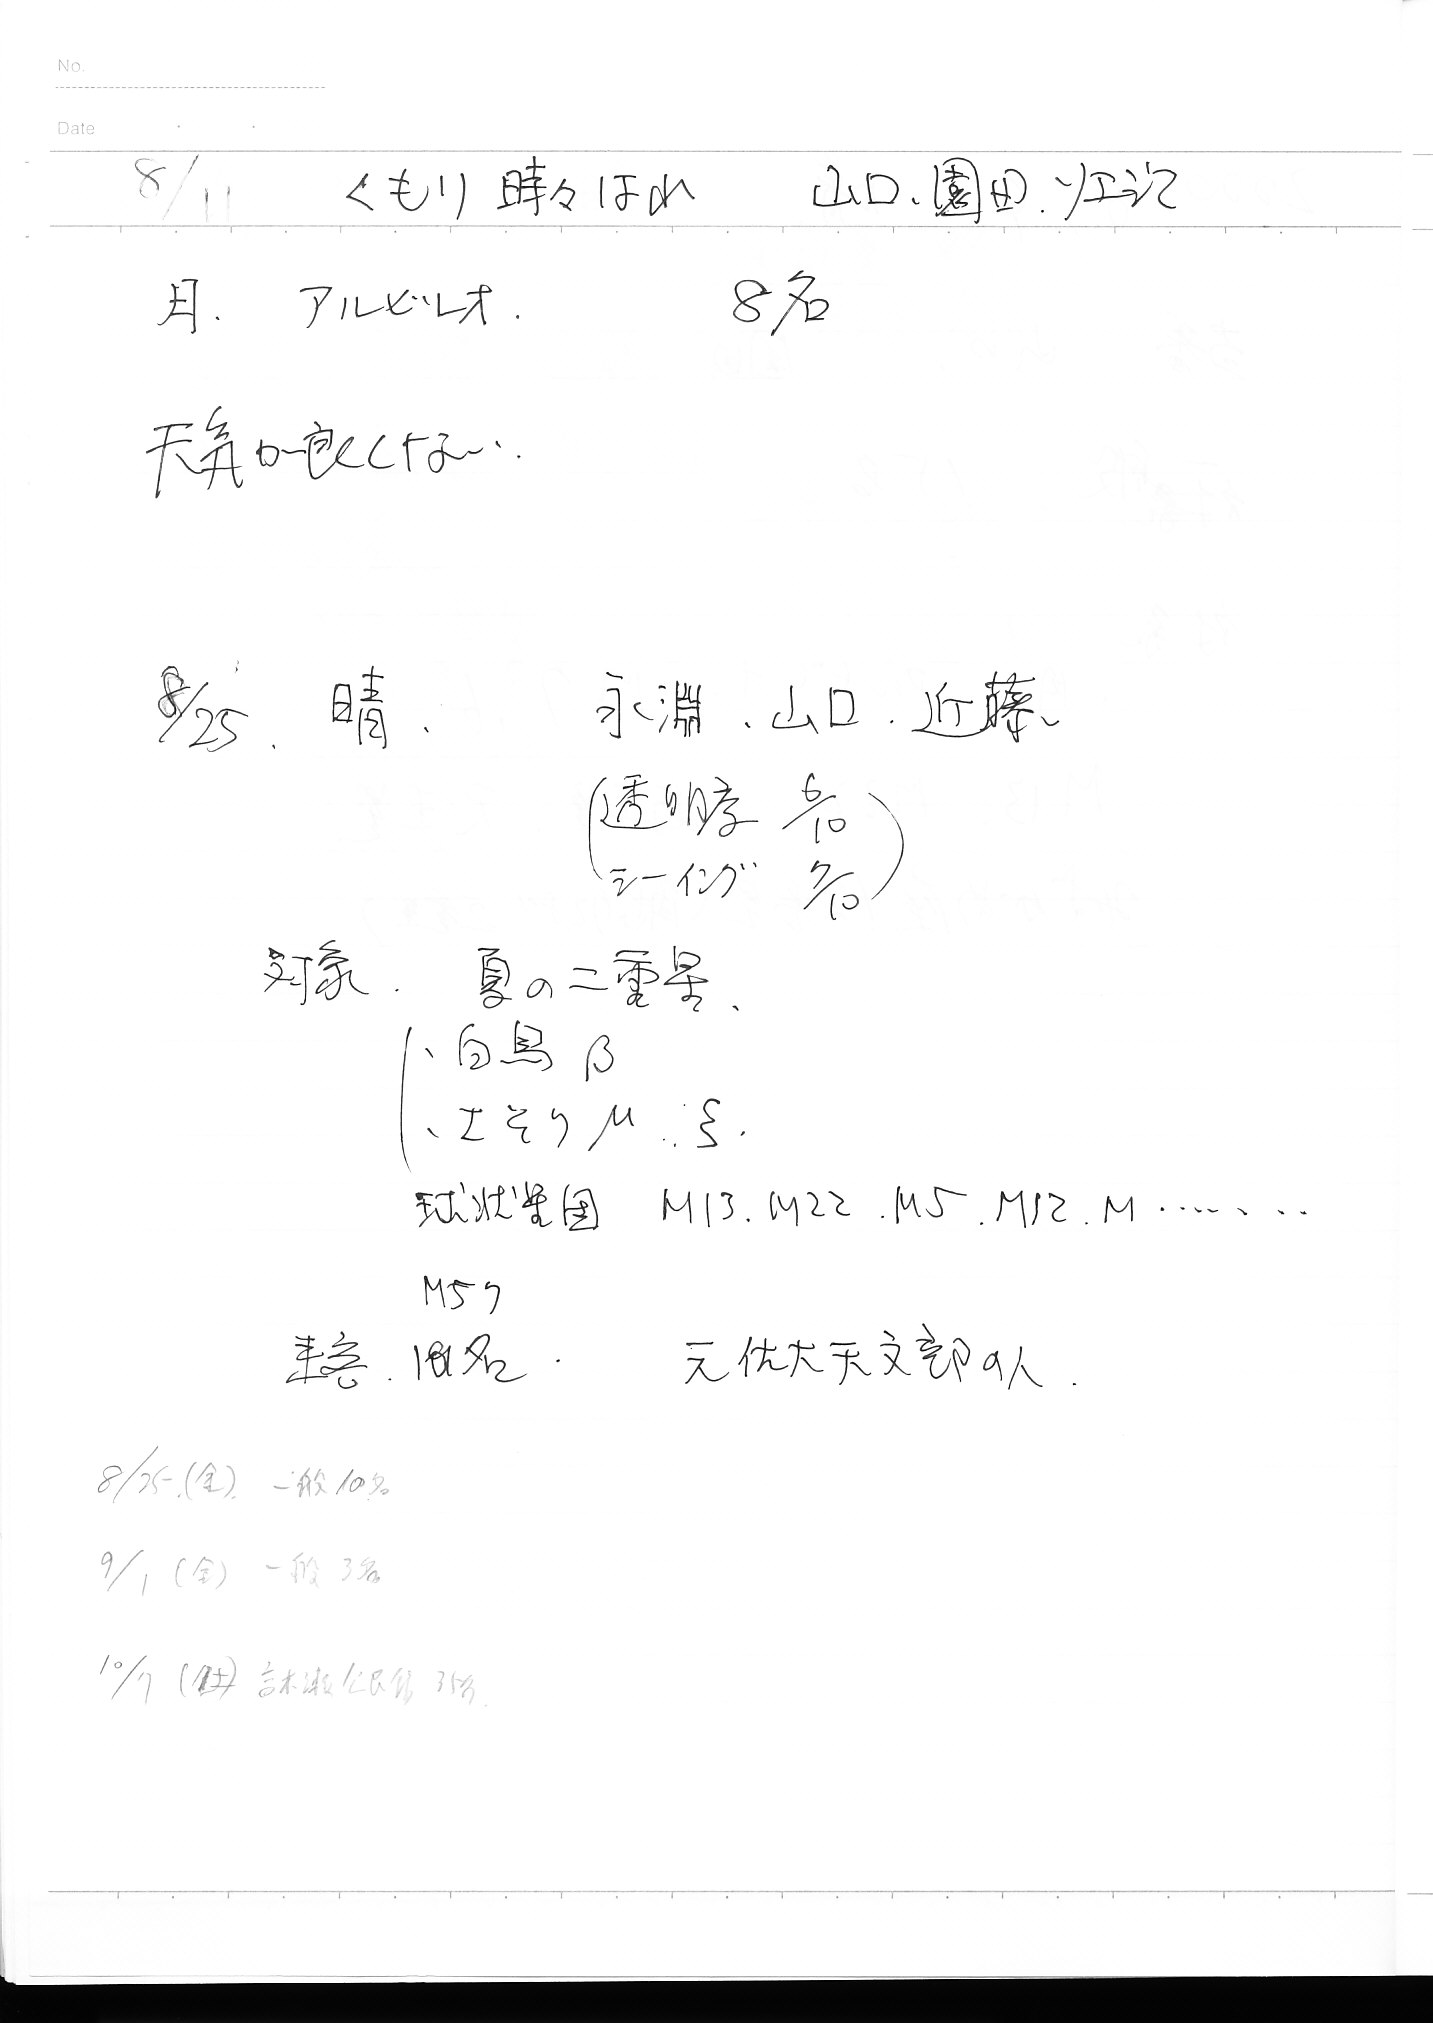 No.
Date
8/11 くもり 時々はれ 山口、園田、ソエジマ
月. アルビレオ. 8名
天気が良くない.
8/25. 晴. 永淵、山口、近藤
(透明度 6/10
シーイング 7/10)
対象. 夏の二重星、
、白鳥 β
、さそり μ、ξ.
球状星団 M13. M22. M5. M12. M........
M57
来客. 名. 元佐大天文部の人.
8/25.(金). 一般10名
9/1 (金) 一般 3名
10/7 (土) 公民館 35名